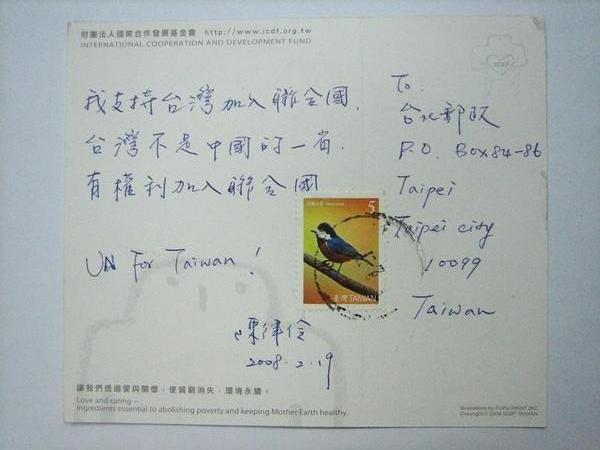 財團法人國際合作發展基金會 http://www.icdf.org.tw
INTERNATIONAL COOPERATION AND DEVELOPMENT FUND
我支持台灣加入聯合國,
台灣不是中國的一省.
有權利加入聯合國
UN for Taiwan!
陳律佺
2008.2.19
To.
P.O. Box 84-86
Taipei
Taipei city
10099
Taiwan
5
臺灣 TAIWAN
讓我們透過愛與關懷,使貧窮消失、環境永續。
Love and caring –
ingredients essential to abolishing poverty and keeping Mother Earth healthy.